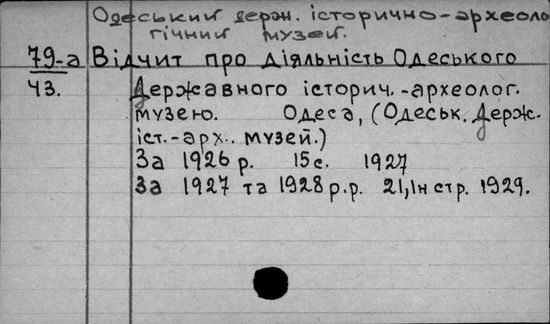 Одеський держ. історично-археоло
гічний музей.
79-а Відчит про діяльність Одеського
43. Державного історич.-археолог.
музею. Одеса, (Одеськ. Держ.
іст.-арх. музей.)
За 1926 р. 15 с. 1927
За 1927 та 1928 р.р. 21, Ін стр. 1929.